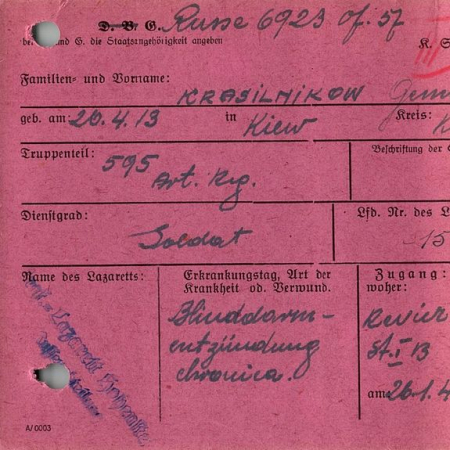 D. B. G. Russe 6923 of. 57
bei und G. die Staatsangehörigkeit angeben
K. S
III
Familien- und Vorname:
KRASILNIKOW
geb. am: 26.4.13 in Kiew Kreis: K
Truppenteil: 595 Art. Reg.
Beschriftung der
Dienstgrad: Soldat
Lfd. Nr. des L
15
Name des Lazaretts:
Erkrankungstag, Art der
Krankheit od. Verwund.
Blinddarm-
entzündung
chronica.
Zugang:
woher:
Revier
St. I B
am: 26.1.4
A/0003